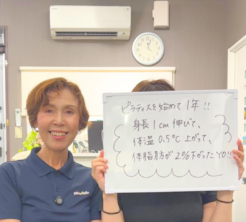 ピラティスを始めて1年!!
身長1cm伸びて、
体温0.5℃上がって、
体脂肪が2%下がったYO!!